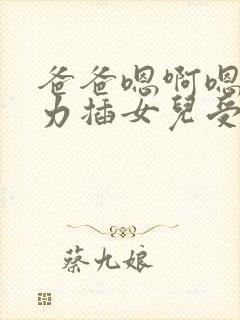 爸爸嗯啊嗯
力插女兒受
蔡九娘